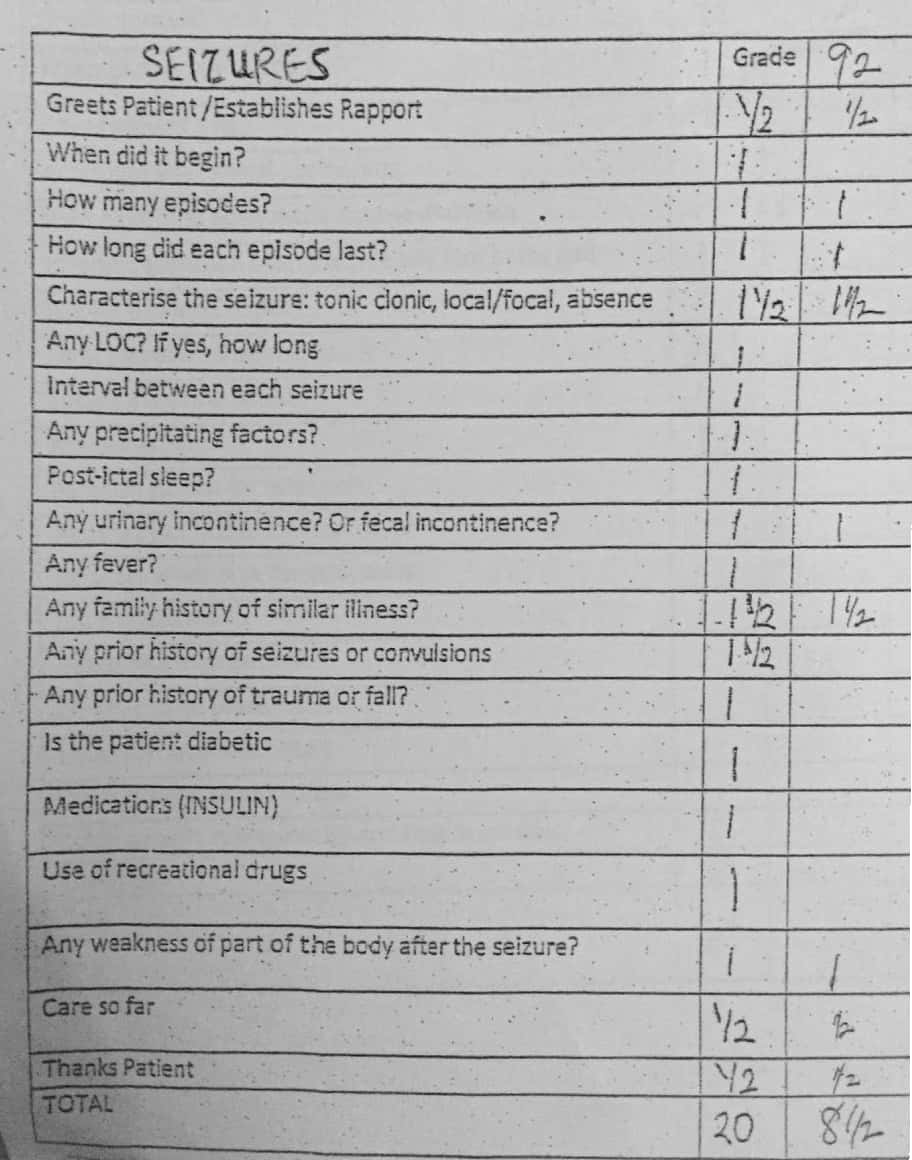 SEIZURES Grade 92
Greets Patient/Establishes Rapport 1/2 1/2
When did it begin? 1
How many episodes? 1 1
How long did each episode last? 1 1
Characterise the seizure: tonic clonic, local/focal, absence 1 1/2 1 1/2
Any LOC? If yes, how long 1
Interval between each seizure 1
Any precipitating factors? 1
Post-ictal sleep? 1
Any urinary incontinence? Or fecal incontinence? 1 1
Any fever? 1
Any family history of similar illness? 1 1/2 1 1/2
Any prior history of seizures or convulsions 1 1/2
Any prior history of trauma or fall? 1
Is the patient diabetic 1
Medications (INSULIN) 1
Use of recreational drugs 1
Any weakness of part of the body after the seizure? 1 1
Care so far 1/2 1/2
Thanks Patient 1/2 1/2
TOTAL 20 8 1/2